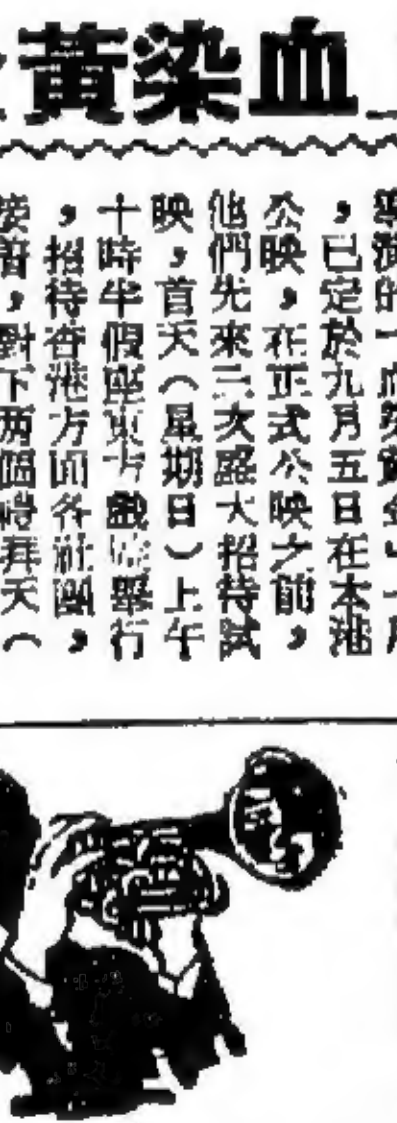 血染黃
導演的「血染黃金」一片
，已定於九月五日在本港
公映，在正式公映之前，
他們先來三次盛大招待試
映，首天（星期日）上午
十時半假座東方戲院舉行
，招待香港方面各社團，
接着，對下兩個禮拜天（